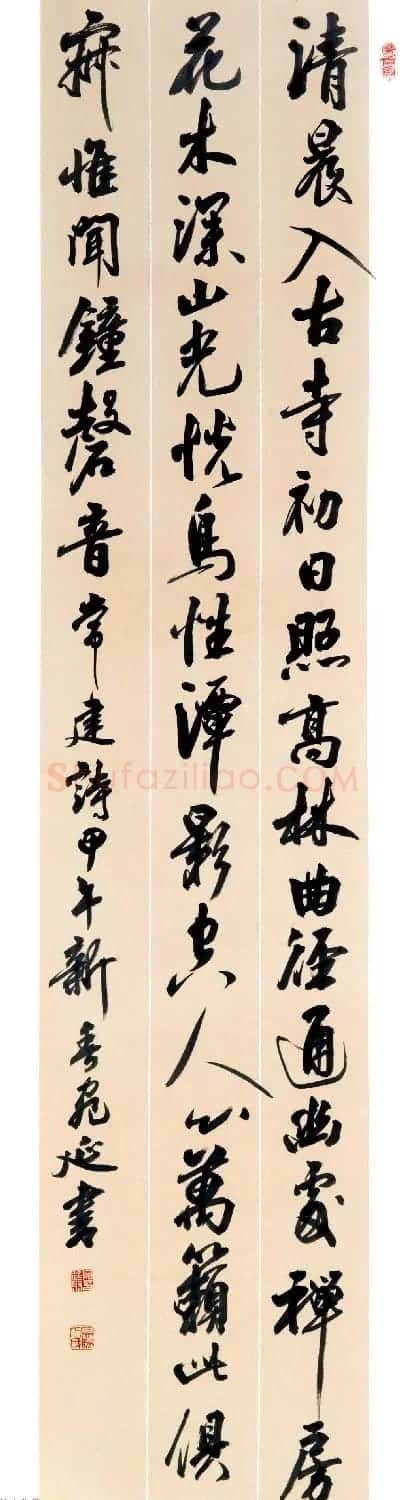 清晨入古寺初日照高林曲徑通幽處禪房
花木深山光悦鳥性潭影空人心萬籟此俱
寂惟聞鐘磬音常建詩甲午新春延書
Shufaziliao.COM